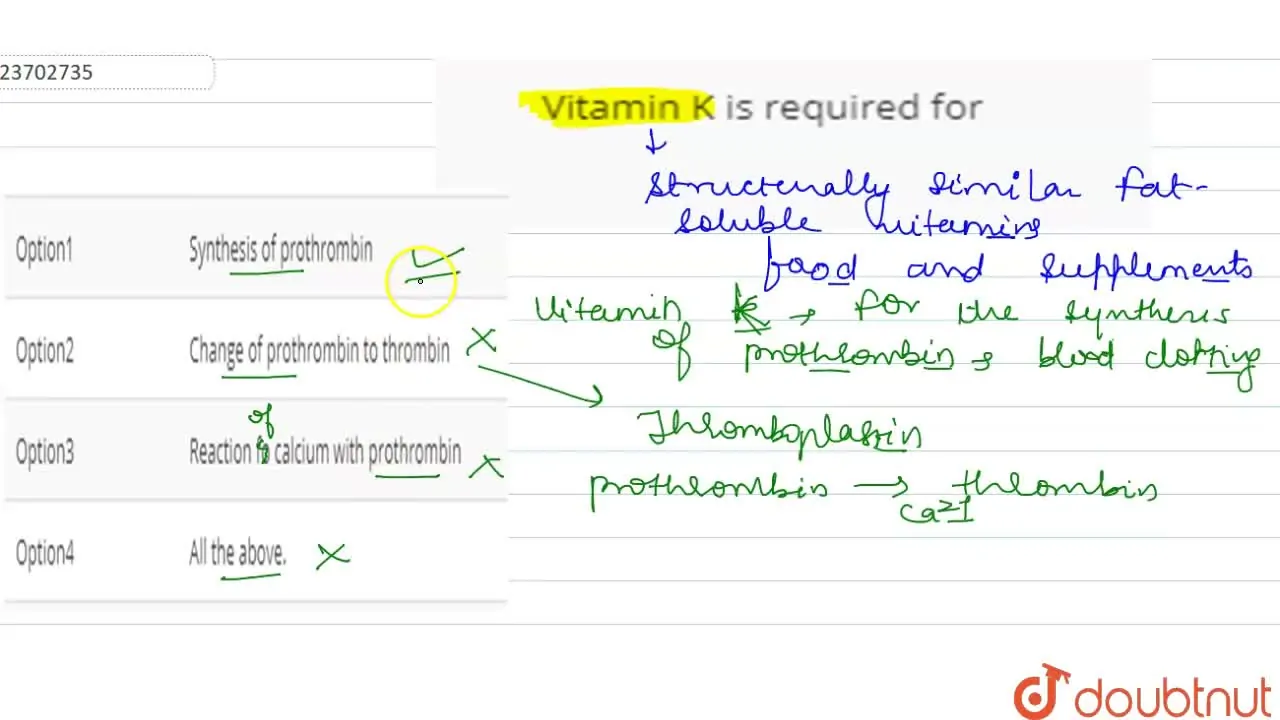 23702735
Vitamin K is required for
↓
Structurally similar fat-
soluble vitamins
food and supplements
Option1 Synthesis of prothrombin
Vitamin K → for the synthesis
of prothrombin, blood clotting
Option2 Change of prothrombin to thrombin
Thromboplastin
of
Option3 Reaction calcium with prothrombin
prothrombin → thrombin
Ca2+
Option4 All the above.
doubtnut